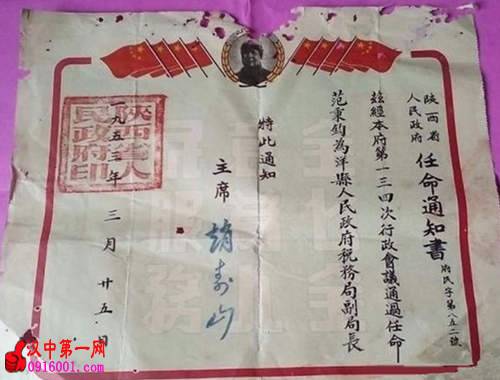 陝西省
人民政府
任命通知書
府民字第八五二號
茲經本府第一三四次行政會議通過任命
范秉鈞為洋縣人民政府稅務局副局長
特此通知
主席 趙壽山
一九五三年 三月 廿五日
陝西省人
民政府印
汉中第一网
0916001.com